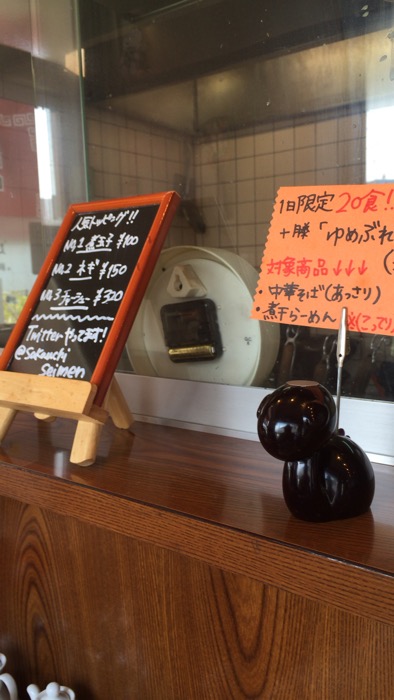 人気トッピング!!
No,1 煮玉子 ¥100
No,2 ネギ ¥150
No,3 チャーシュー ¥320
Twitterやってます!
@Sakauchi
Seimen
1日限定20食!!
十勝「ゆめぶれ
対象商品↓↓↓
・中華そば(あっさり)
・煮干らーめん (こってり